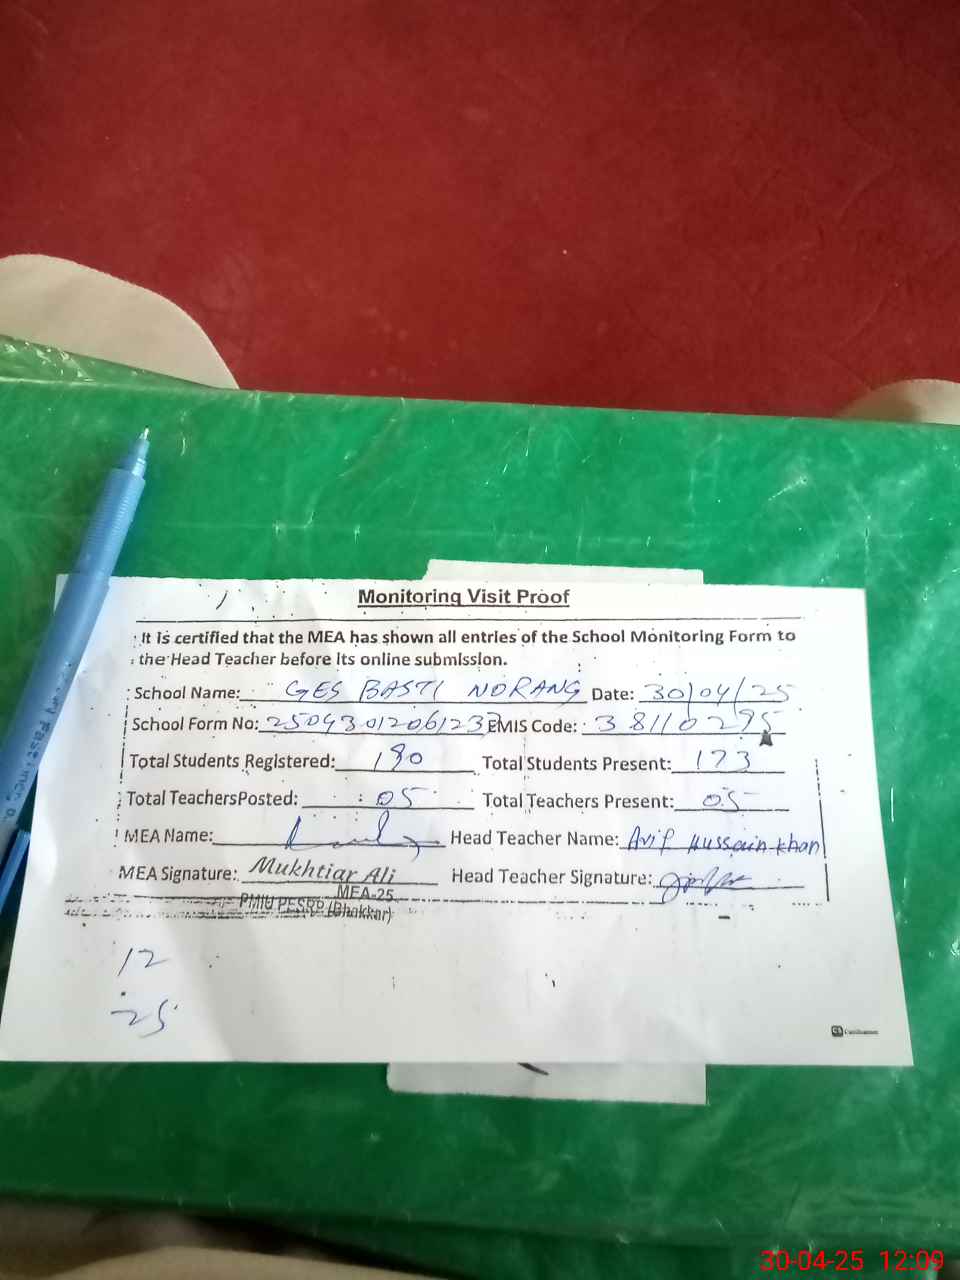 Monitoring Visit Proof
It is certified that the MEA has shown all entries of the School Monitoring Form to
the Head Teacher before its online submission.
School Name: GES BASTI NORANG Date: 30/04/25
School Form No: 2504301206123 EMIS Code: 38110295
Total Students Registered: 190 Total Students Present: 173
Total TeachersPosted: 05 Total Teachers Present: 05
MEA Name: Head Teacher Name: Arif Hussain khan
MEA Signature: Mukhtiar Ali Head Teacher Signature:
MEA-25
PMIU PESRP (Bhakkar)
12
25
CS CamScanner
30-04-25 12:09